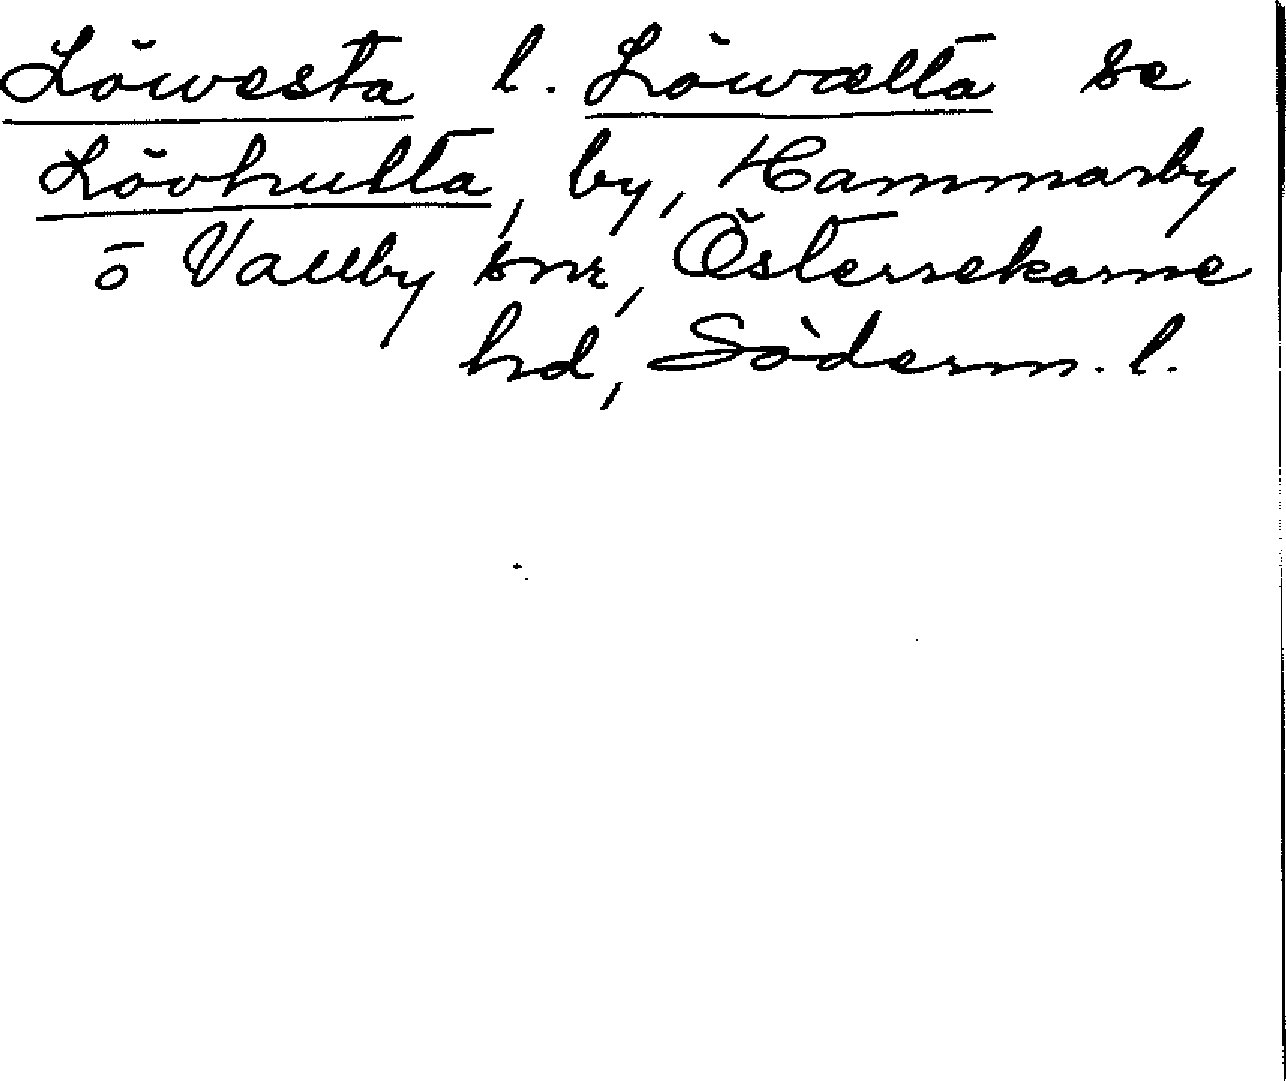 Löwesta l. Löwælta se
Lövhulta, by, Hammarby
o Vallby snr, Österrekarne
hd, Söderm. l.